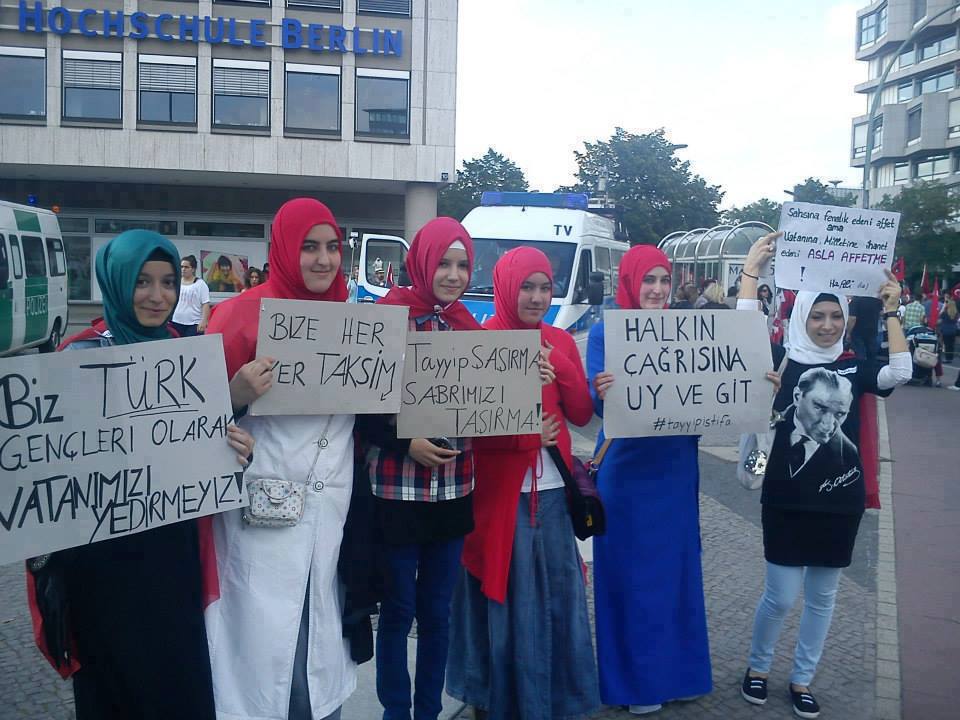 HOCHSCHULE BERLIN
TV
POLIZEI
Biz TÜRK
GENÇLERİ OLARAK
VATANIMIZI
YEDİRMEYİZ!
BIZE HER
YER TAKSİM
Tayyip ŞAŞIRMA
SABRIMIZI
TAŞIRMA!
HALKIN
ÇAĞRISINA
UY VE GİT
#tayyipistifa
Şahsına fenalık edeni affet
ama
Vatanına, Milletine ihanet
edeni ASLA AFFETME
!